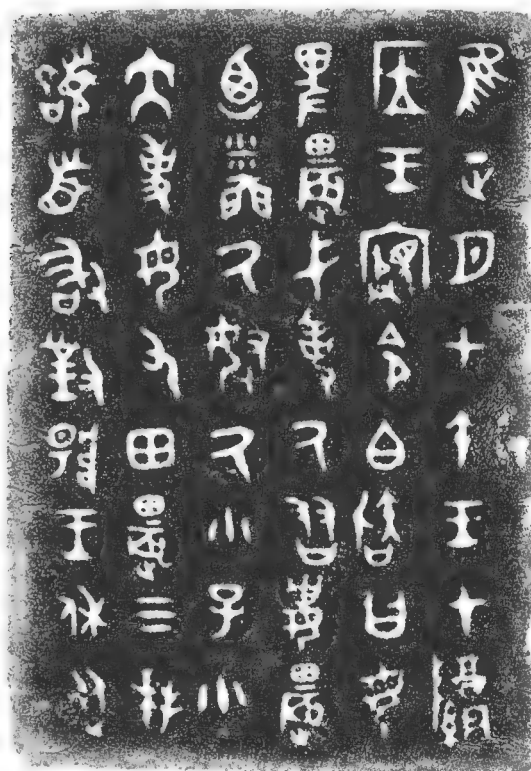 隹正月甲午王才𨺅
应王寴令白𢓜曰毋
卑農弋事氒友妻農
廼廩氒帑氒小子小
大事毋又田農三拜
𩒨首敢對揚王休从